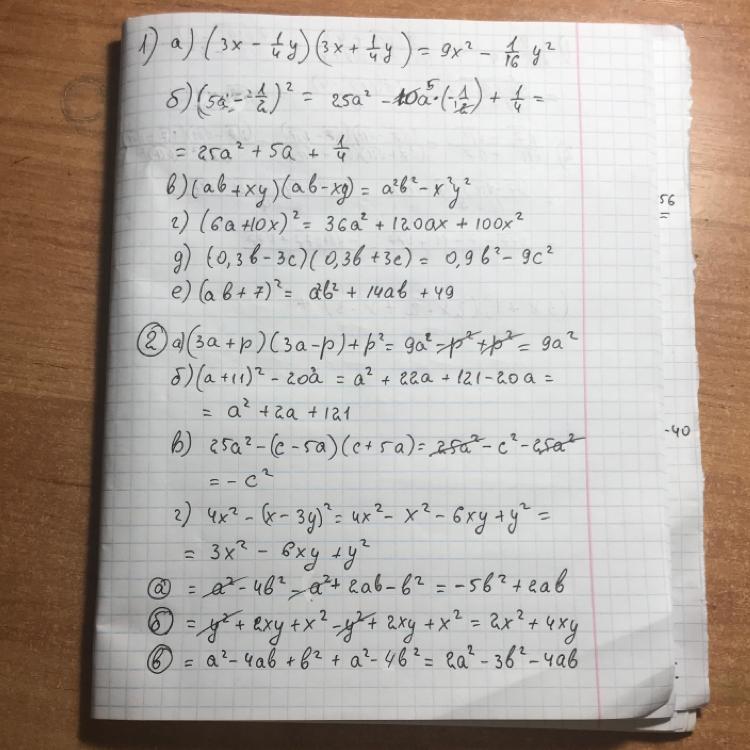 1) а) (3x - 1/4 y)(3x + 1/4 y) = 9x² - 1/16 y²
б) (5a - 1/2)² = 25a² - 10a⁵·(-1/2) + 1/4 =
= 25a² + 5a + 1/4
в) (ab+xy)(ab-xy) = a²b² - x²y²
г) (6a+10x)² = 36a² + 120ax + 100x²
д) (0,3b-3c)(0,3b+3c) = 0,9b² - 9c²
е) (ab+7)² = a²b² + 14ab + 49
2 а) (3a+p)(3a-p)+p² = 9a² - p² + p² = 9a²
б) (a+11)² - 20a = a² + 22a + 121 - 20a =
= a² + 2a + 121
в) 25a² - (c-5a)(c+5a) = 25a² - c² - 25a²
= - c²
г) 4x² - (x-3y)² = 4x² - x² - 6xy + y² =
= 3x² - 6xy + y²
а) = a² - 4b² - a² + 2ab - b² = -5b² + 2ab
б) = y² + 2xy + x² - y² + 2xy + x² = 2x² + 4xy
в) = a² - 4ab + b² + a² - 4b² = 2a² - 3b² - 4ab
56
=
-40